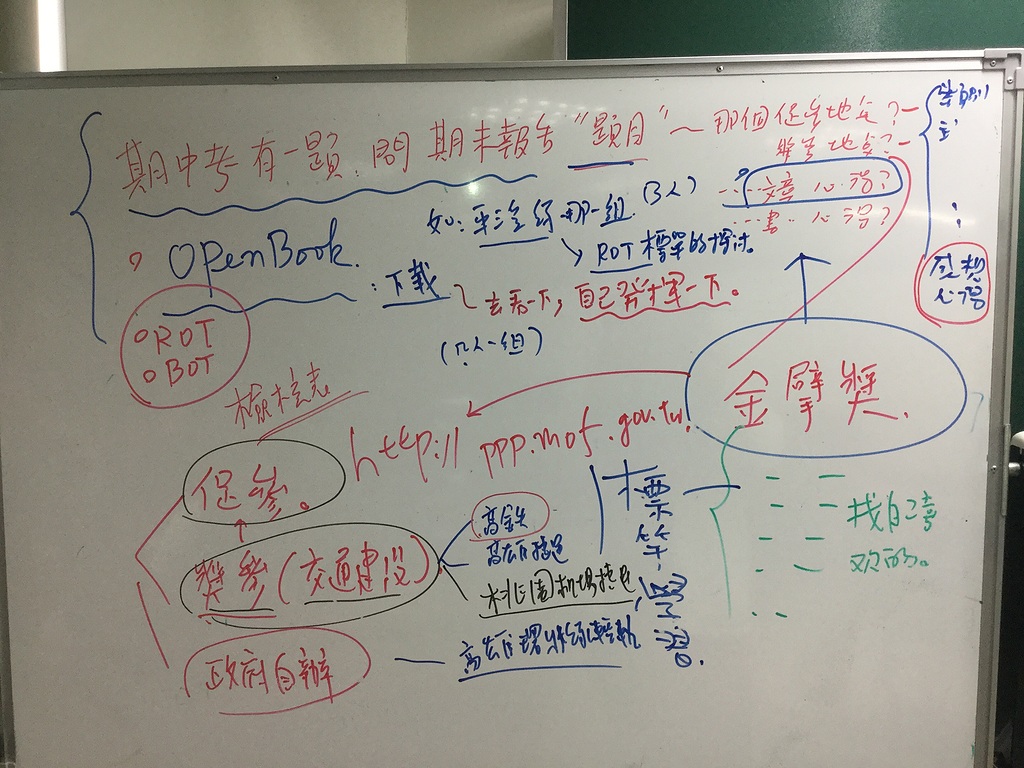 期中考有一題 問 期末報告 "題目" ~ 那個促參地点?
地点?
心得?
書 心得?
OpenBook.
如: 那一組 (3人)
ROT 標單的探討。
:下載
去看一下, 自己發揮一下。
感想
心得
ROT
BOT
檢核表
金擘獎.
http:// ppp.mof.gov.tw.
促參。
獎參 (交通建設)
政府自辦
高鐵
高雄捷運
桃園机場捷運
高雄環狀線輕軌
標竿學習.
找自己喜
欢的。